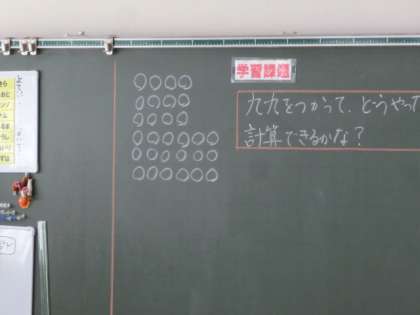 学習課題
九九をつかって、どうやって
計算できるかな?